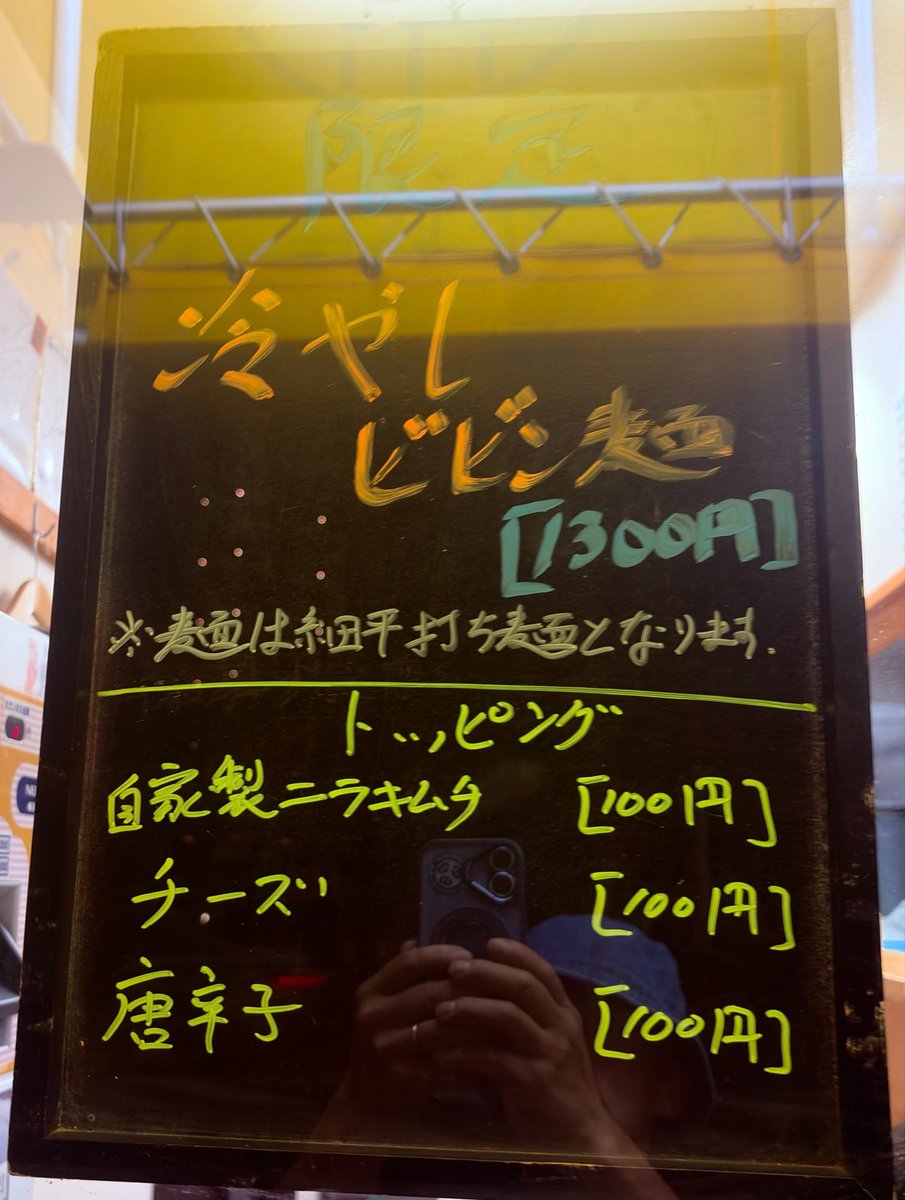 限定
冷やし
ビビン麺
[1300円]
※麺は細平打ち麺となります.
トッピング
自家製ニラキムチ [100円]
チーズ [100円]
唐辛子 [100円]